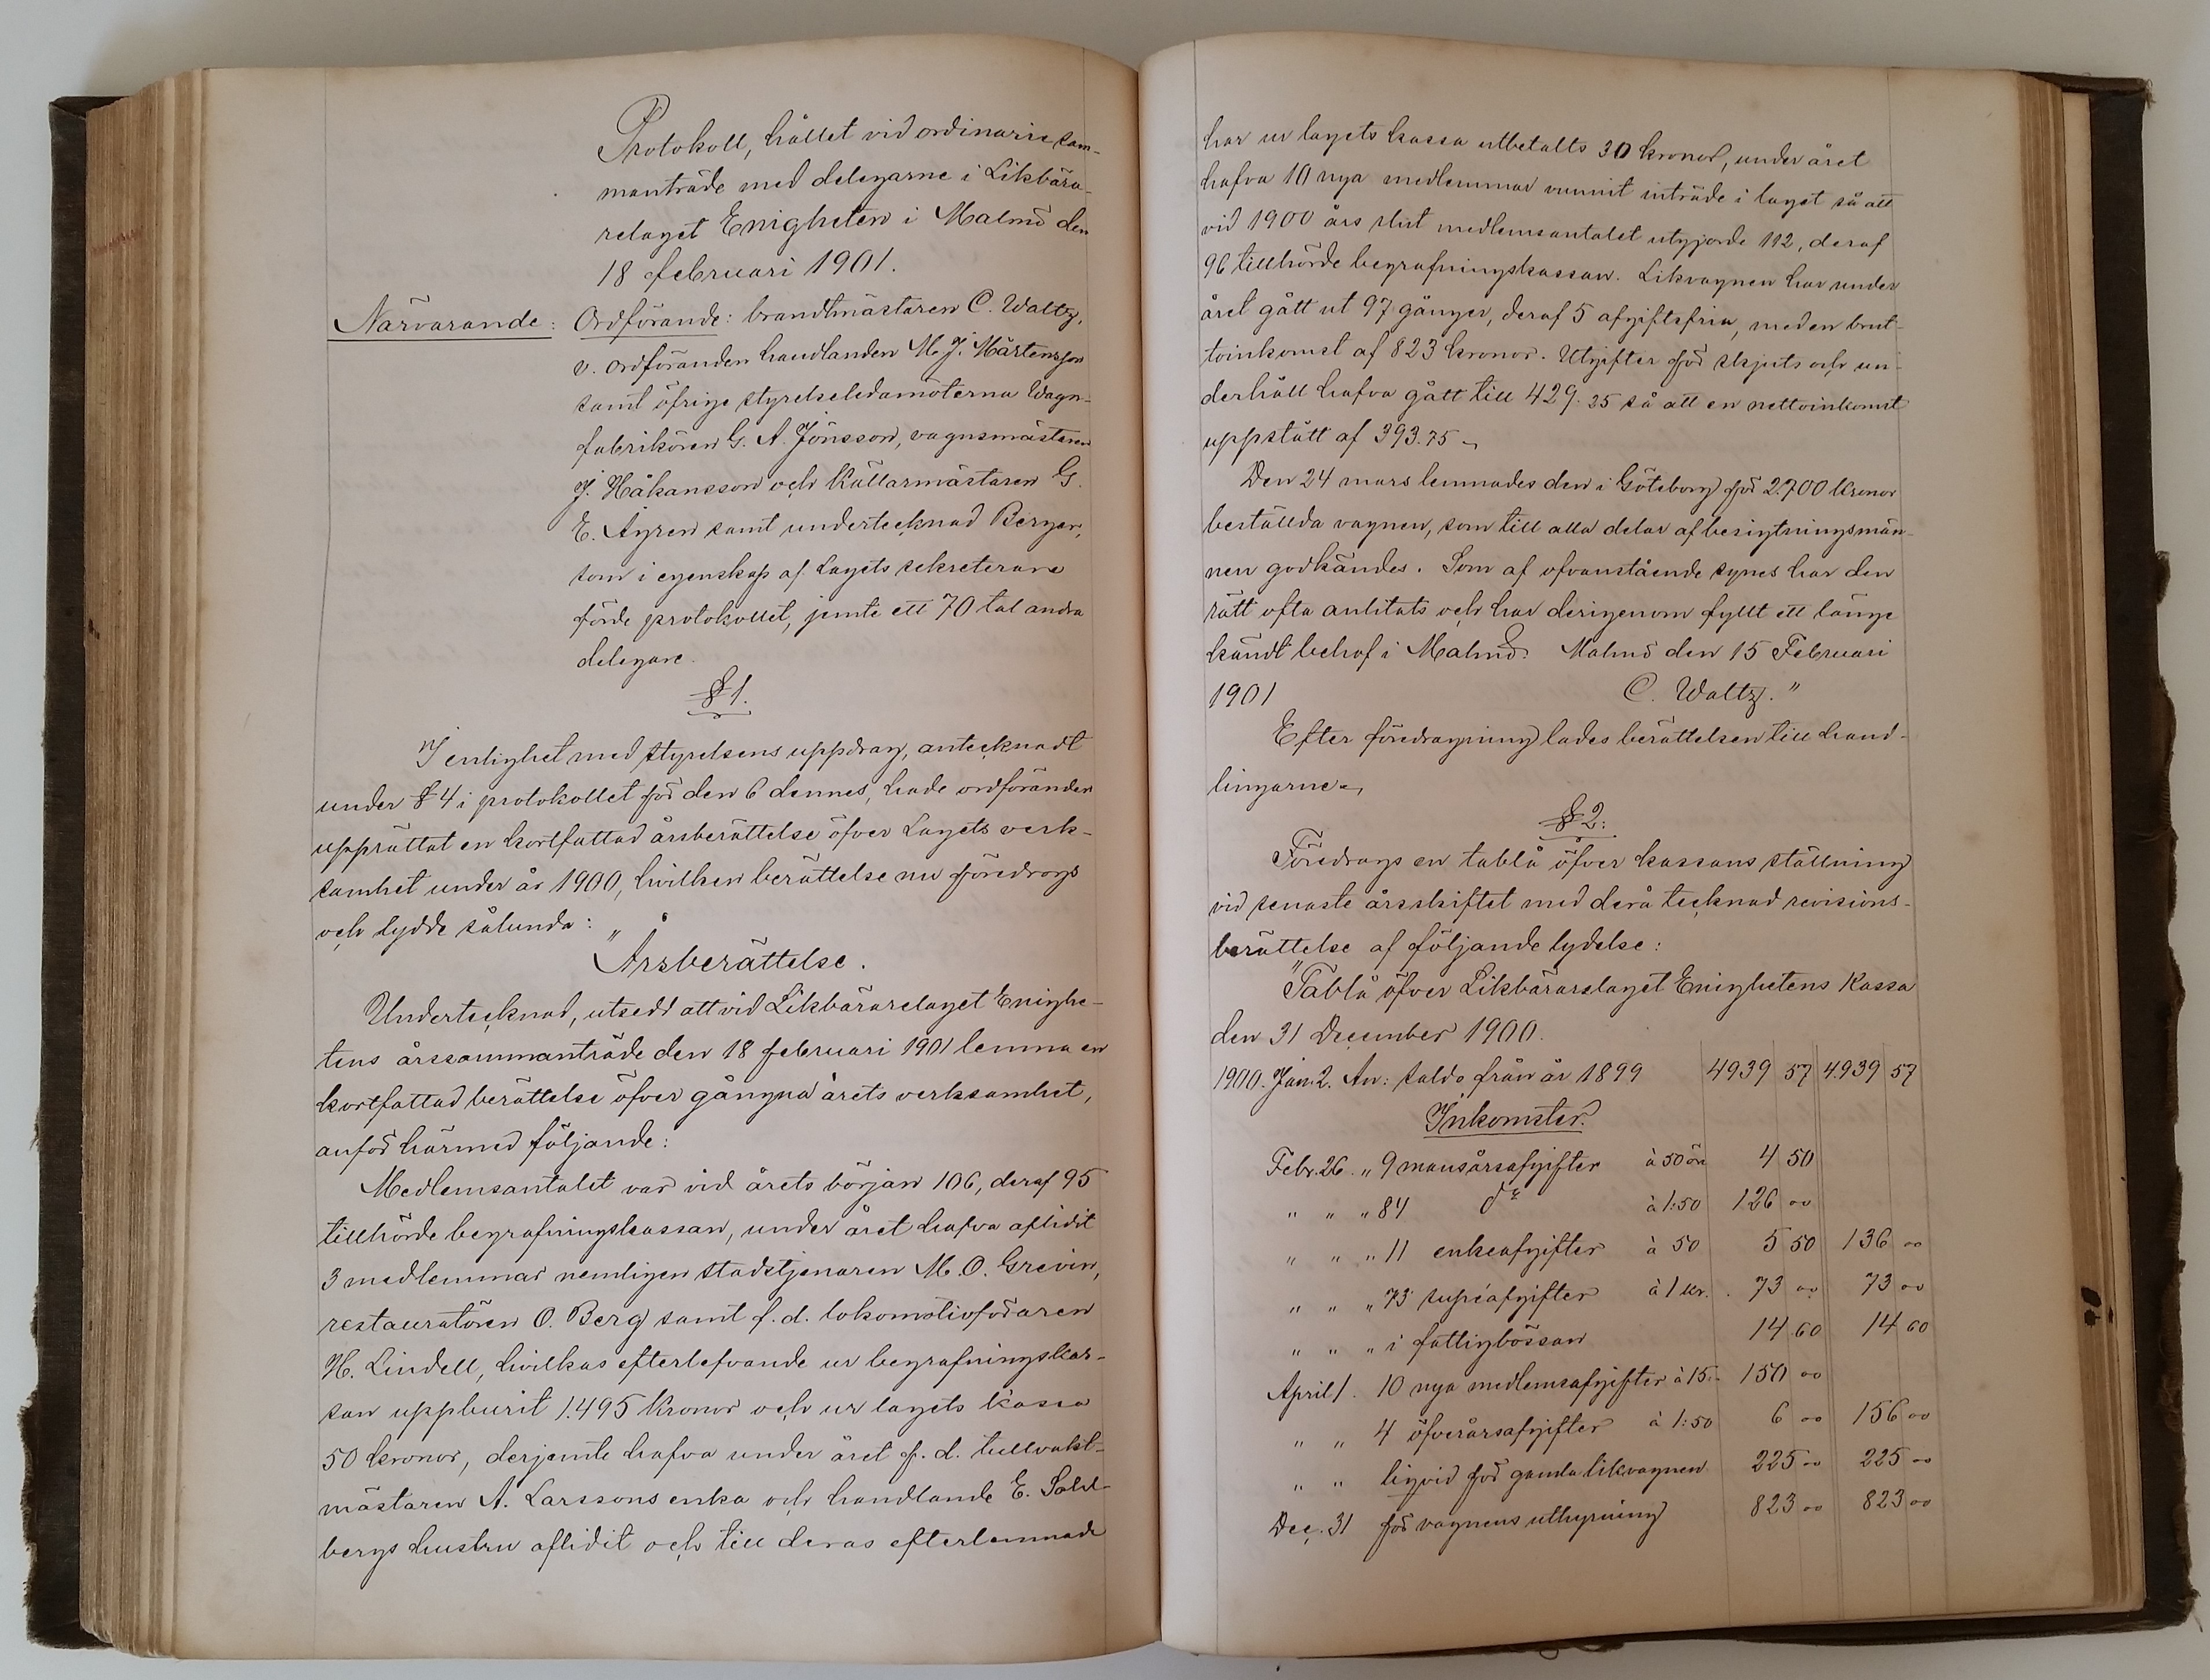 Protokoll, hållet vid ordinarie sam-
manträde med delegarne i Likbära-
relaget Enigheten i Malmö den
18 februari 1901.
Närvarande: Ordförande: brandtmästaren C. Waltz,
v. ordföranden handlanden M. J. Mårtensson
samt öfrige styrelseledamöterna Wagn-
fabrikören G. A. Jönsson, vagnsmästaren
J. Håkansson och Källarmästaren G.
E. Ågren samt undertecknad Berger,
som i egenskap af Lagets sekreterare
förde protokollet, jemte ett 70 tal andra
delegare.
§ 1.
I enlighet med styrelsens uppdrag, antecknadt
under § 4 i protokollet för den 6 dennes, hade ordföranden
upprättat en kortfattad årsberättelse öfver Lagets verk-
samhet under år 1900, hvilken berättelse nu föredrogs
och lydde sålunda:
"Årsberättelse.
Undertecknad, utsedd att vid Likbärarelaget Enighe-
tens årssammanträde den 18 februari 1901 lemna en
kortfattad berättelse öfver gångna årets verksamhet,
anför härmed följande:
Medlemsantalet var vid årets början 106, deraf 95
tillhörde begrafningskassan, under året hafva aflidit
3 medlemmar nemligen stadstjenaren M. O. Grevin,
restauratören O. Berg samt f. d. lokomotivföraren
H. Lindell, hvilkas efterlefvande ur begrafningskas-
san uppburit 1.495 Kronor och ur lagets kassa
50 kronor, derjemte hafva under året f. d. tullvakt-
mästaren A. Larssons enka och handlande E. Sahl-
bergs hustru aflidit och till deras efterlemnade
har ur lagets kassa utbetalts 30 kronor, under året
hafva 10 nya medlemmar vunnit inträde i laget så att
vid 1900 års slut medlemsantalet utgjorde 112, deraf
96 tillhörde begrafningskassan. Likvagnen har under
året gått ut 97 gånger, deraf 5 afgiftsfria, med en brut-
toinkomst af 823 kronor. Utgifter för skjuts och un-
derhåll hafva gått till 429. 25 så att en nettoinkomst
uppstått af 393.75
Den 24 mars lemnades den i Göteborg för 2.700 Kronor
beställda vagnen, som till alla delar af besigtningsmän-
nen godkändes. Som af ofvanstående synes har den
rätt ofta anlitats och har derigenom fyllt ett länge
kändt behof i Malmö. Malmö den 15 Februari
1901 C. Waltz."
Efter föredragning lades berättelsen till hand-
lingarne
§ 2.
Föredrags en tablå öfver kassans ställning
vid senaste årsskiftet med derå tecknad revisions-
berättelse af följande lydelse:
"Tablå öfver Likbärarelaget Enighetens Kassa
den 31 December 1900.
1900. Jan. 2. An: saldo från år 1899 4939 57 4.939 57
Inkomster.
Febr. 26. " 9 mansårsafgifter à 50 öre 4 50
" " " 84 do à 1:50 126 00
" " " 11 enkeafgifter à 50 5 50 136 00
" " " 73 supéafgifter à 1 kr. 73 00 73 00
" " " i fattigbössan 14 60 14 60
April 1. 10 nya medlemsafgifter à 15:- 150 00
" " 4 öfverårsafgifter à 1:50 6 00 156 00
" " liqvid för gamla likvagnen 225 00 225 00
Dec. 31 för vagnens uthyrning 823 00 823 00